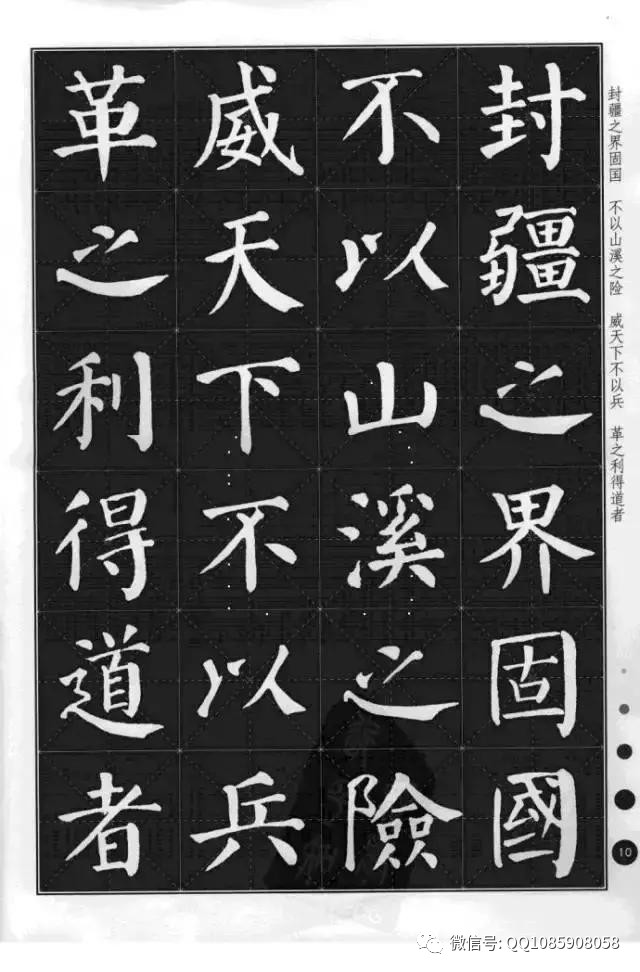 封疆之界固國
不以山溪之險
威天下不以兵
革之利得道者
封疆之界固国 不以山溪之险 威天下不以兵 革之利得道者
10
微信号: QQ1085908058